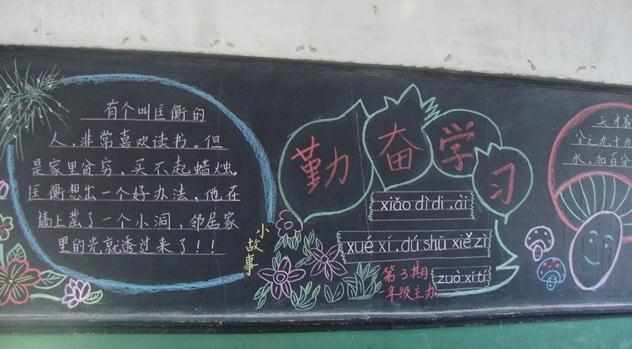 有个叫匡衡的
人,非常喜欢读书。但
是家里贫穷,买不起蜡烛。
匡衡想出一个好办法,他在
墙上凿了一个小洞,邻居家
里的光就透过来了!!
小故事
勤奋学习
xiǎo dì di .ài
xué xí .dú shū xiě zì
zuò xí tí
第3期
年级主办